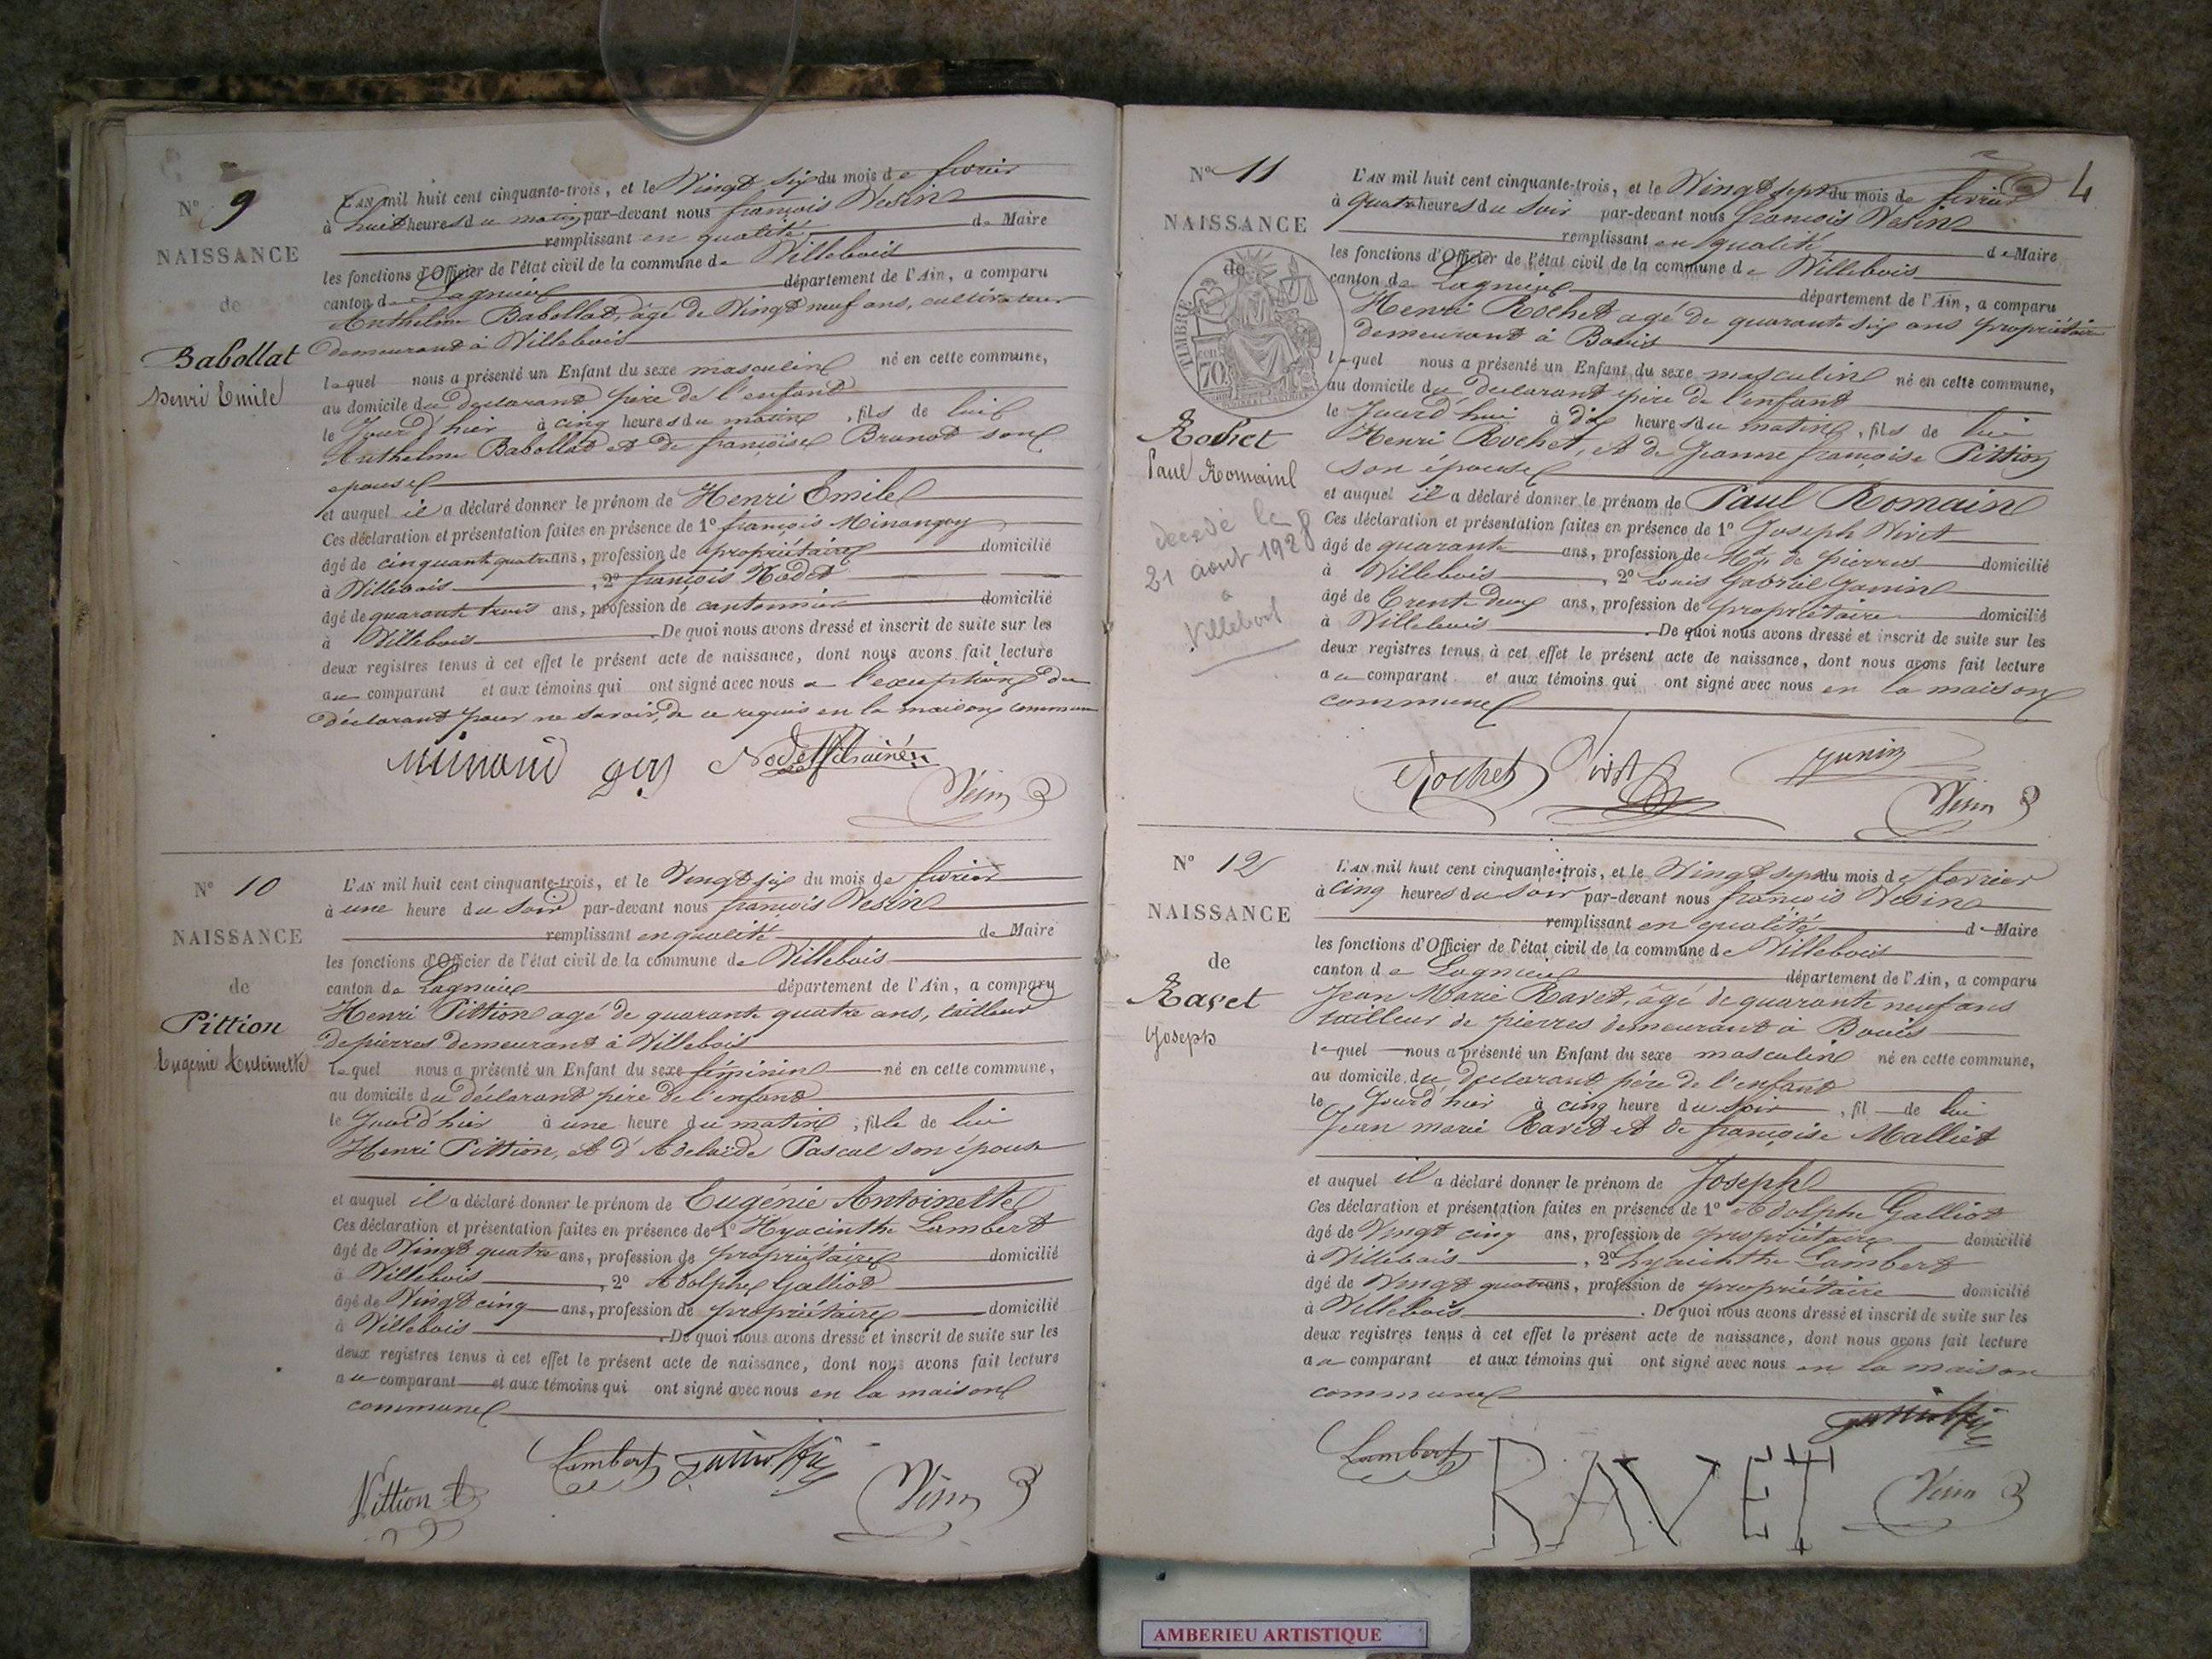 N° 9
NAISSANCE
de
Babollat
henri Emile
L'AN mil huit cent cinquante-trois, et le Vingt six du mois de fevrier
à huit heures du matin par-devant nous françois Vesin
remplissant en qualité de Maire
les fonctions d'Officier de l'état civil de la commune de Villebois
canton de Lagnieu département de l'Ain, a comparu
Anthelme Babollat, âgé de Vingt neuf ans, cultivateur
demeurant à Villebois
lequel nous a présenté un Enfant du sexe masculin né en cette commune,
au domicile du déclarant père de l'enfant
le Jourd'hier à cinq heures du matin, fils de lui
Anthelme Babollat et de françoise Brunot son
epouse
et auquel il a déclaré donner le prénom de Henri Emile
Ces déclaration et présentation faites en présence de 1° françois Minangoy
âgé de cinquante quatre ans, profession de propriétaire domicilié
à Villebois, 2° françois Nodet
âgé de quarante trois ans, profession de cantonnier domicilié
à Villebois. De quoi nous avons dressé et inscrit de suite sur les
deux registres tenus à cet effet le présent acte de naissance, dont nous avons fait lecture
au comparant et aux témoins qui ont signé avec nous a l'exception du
déclarant pour ne savoir, de ce requis en la maison commune
Minand goy Nodet Vesin
N° 10
NAISSANCE
de
Pittion
Eugenie Antoinette
L'AN mil huit cent cinquante-trois, et le Vingt six du mois de fevrier
à une heure du soir par-devant nous françois Vesin
remplissant en qualité de Maire
les fonctions d'Officier de l'état civil de la commune de Villebois
canton de Lagnieu département de l'Ain, a comparu
Henri Pittion agé de quarante quatre ans, tailleur
de pierres demeurant à Villebois
lequel nous a présenté un Enfant du sexe féminin né en cette commune,
au domicile du déclarant père de l'enfant
le Jourd'hier à une heure du matin, fille de lui
Henri Pittion, et d'Adelaïde Pascal son épouse
et auquel il a déclaré donner le prénom de Eugénie Antoinette
Ces déclaration et présentation faites en présence de 1° Hyacinthe Lambert
âgé de Vingt quatre ans, profession de propriétaire domicilié
à Villebois, 2° Adolphe Galliot
âgé de Vingt cinq ans, profession de propriétaire domicilié
à Villebois. De quoi nous avons dressé et inscrit de suite sur les
deux registres tenus à cet effet le présent acte de naissance, dont nous avons fait lecture
au comparant et aux témoins qui ont signé avec nous en la maison
commune
Pittion Lambert Vesin
4
N° 11
NAISSANCE
de
TIMBRE
70
Rochet
Paul Romain
decedé le
21 aout 1928
a
Villebois
L'AN mil huit cent cinquante-trois, et le Vingt sept du mois de fevrier
à quatre heures du soir par-devant nous françois Vesin
remplissant en qualité de Maire
les fonctions d'Officier de l'état civil de la commune de Villebois
canton de Lagnieu département de l'Ain, a comparu
Henri Rochet agé de quarante six ans propriétaire
demeurant à Bouis
lequel nous a présenté un Enfant du sexe masculin né en cette commune,
au domicile du déclarant père de l'enfant
le Jourd'hui à dix heures du matin, fils de lui
Henri Rochet, et de Jeanne françoise Pittion
son épouse
et auquel il a déclaré donner le prénom de Paul Romain
Ces déclaration et présentation faites en présence de 1° Joseph Vivet
âgé de quarante ans, profession de Md de pierres domicilié
à Villebois, 2° Louis Gabriel Janin
âgé de trente deux ans, profession de propriétaire domicilié
à Villebois. De quoi nous avons dressé et inscrit de suite sur les
deux registres tenus à cet effet le présent acte de naissance, dont nous avons fait lecture
au comparant et aux témoins qui ont signé avec nous en la maison
commune
Rochet Vivet Janin Vesin
N° 12
NAISSANCE
de
Ravet
Joseph
L'AN mil huit cent cinquante-trois, et le Vingt sept du mois de fevrier
à cinq heures du soir par-devant nous françois Vesin
remplissant en qualité de Maire
les fonctions d'Officier de l'état civil de la commune de Villebois
canton de Lagnieu département de l'Ain, a comparu
Jean Marie Ravet, âgé de quarante neuf ans
tailleur de pierres demeurant à Bouis
lequel nous a présenté un Enfant du sexe masculin né en cette commune,
au domicile du déclarant père de l'enfant
le Jourd'hier à cinq heure du soir, fil de lui
Jean marie Ravet et de françoise Malliet
et auquel il a déclaré donner le prénom de Joseph
Ces déclaration et présentation faites en présence de 1° Adolphe Galliot
âgé de Vingt cinq ans, profession de propriétaire domicilié
à Villebois, 2° hyacinthe Lambert
âgé de Vingt quatre ans, profession de propriétaire domicilié
à Villebois. De quoi nous avons dressé et inscrit de suite sur les
deux registres tenus à cet effet le présent acte de naissance, dont nous avons fait lecture
au comparant et aux témoins qui ont signé avec nous en la maison
commune
Lambert RAVET Vesin
AMBERIEU ARTISTIQUE